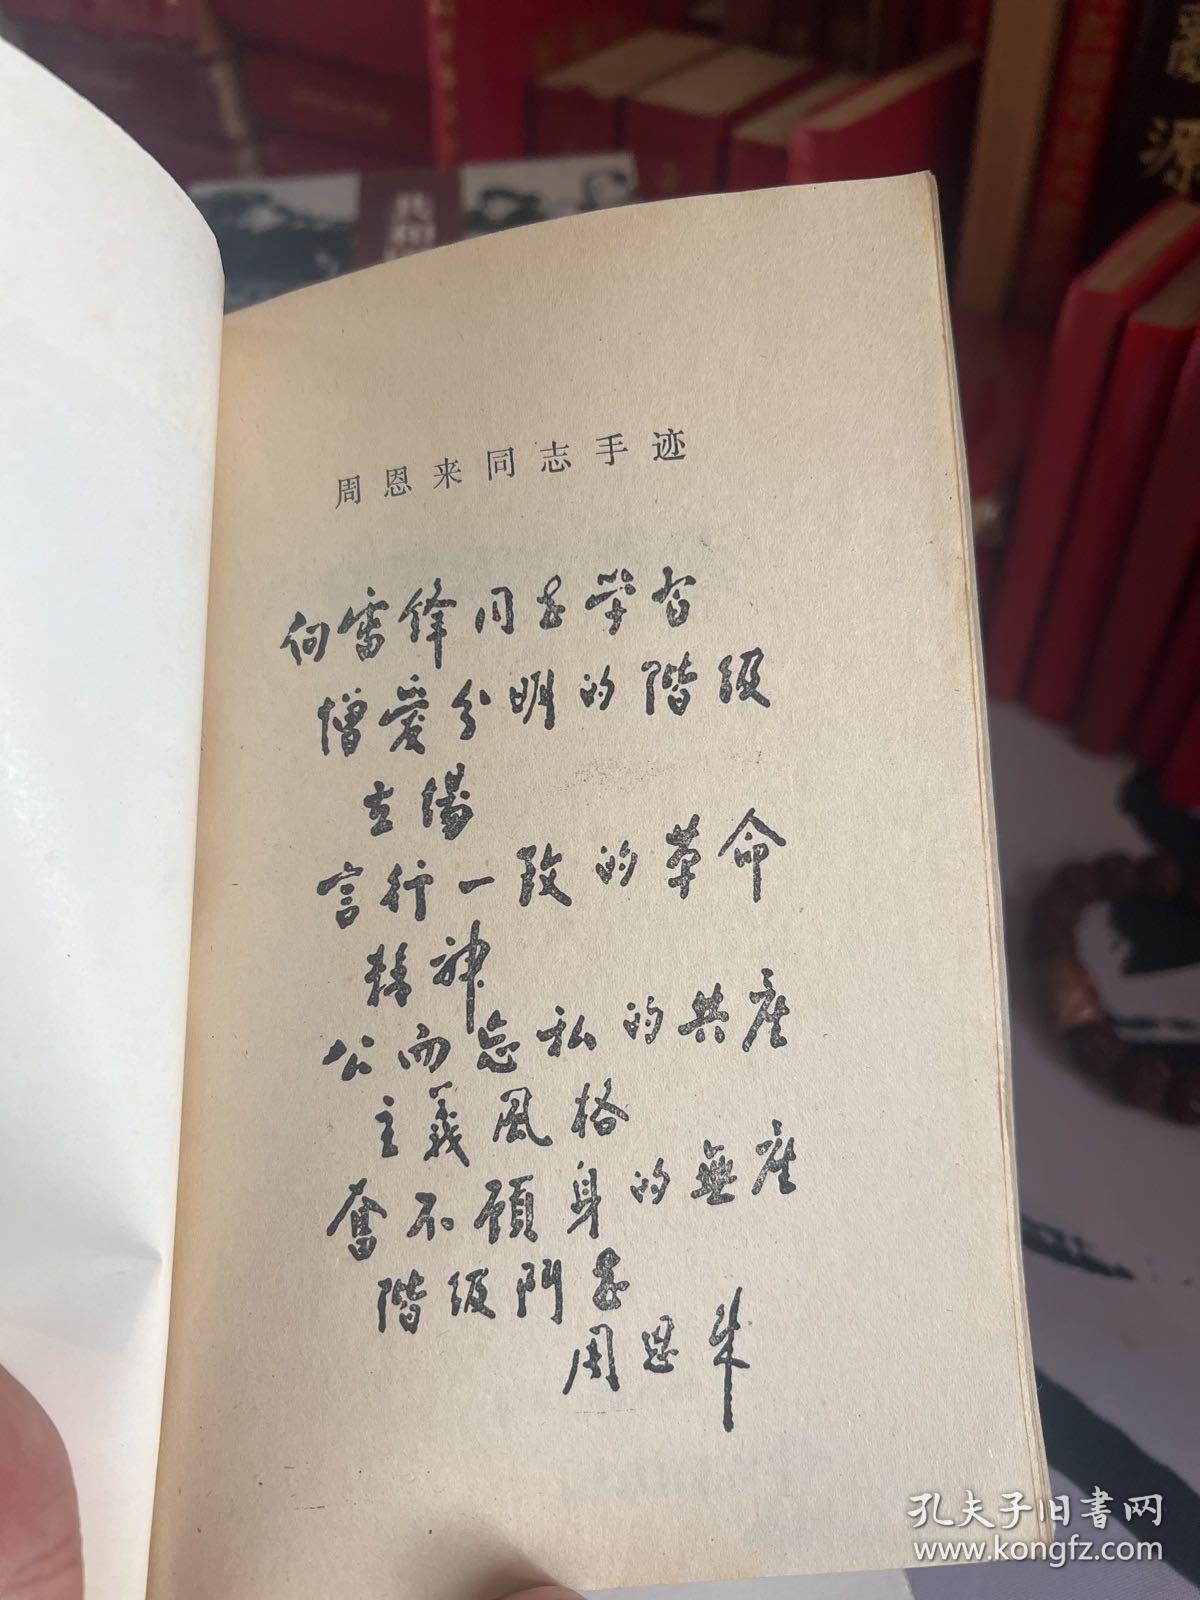 共和
源
周恩来同志手迹
向雷锋同志学习
憎愛分明的階級
立場
言行一致的革命
精神
公而忘私的共产
主義風格
奮不顧身的無产
階級鬥志
周恩来
孔夫子旧书网
www.kongfz.com